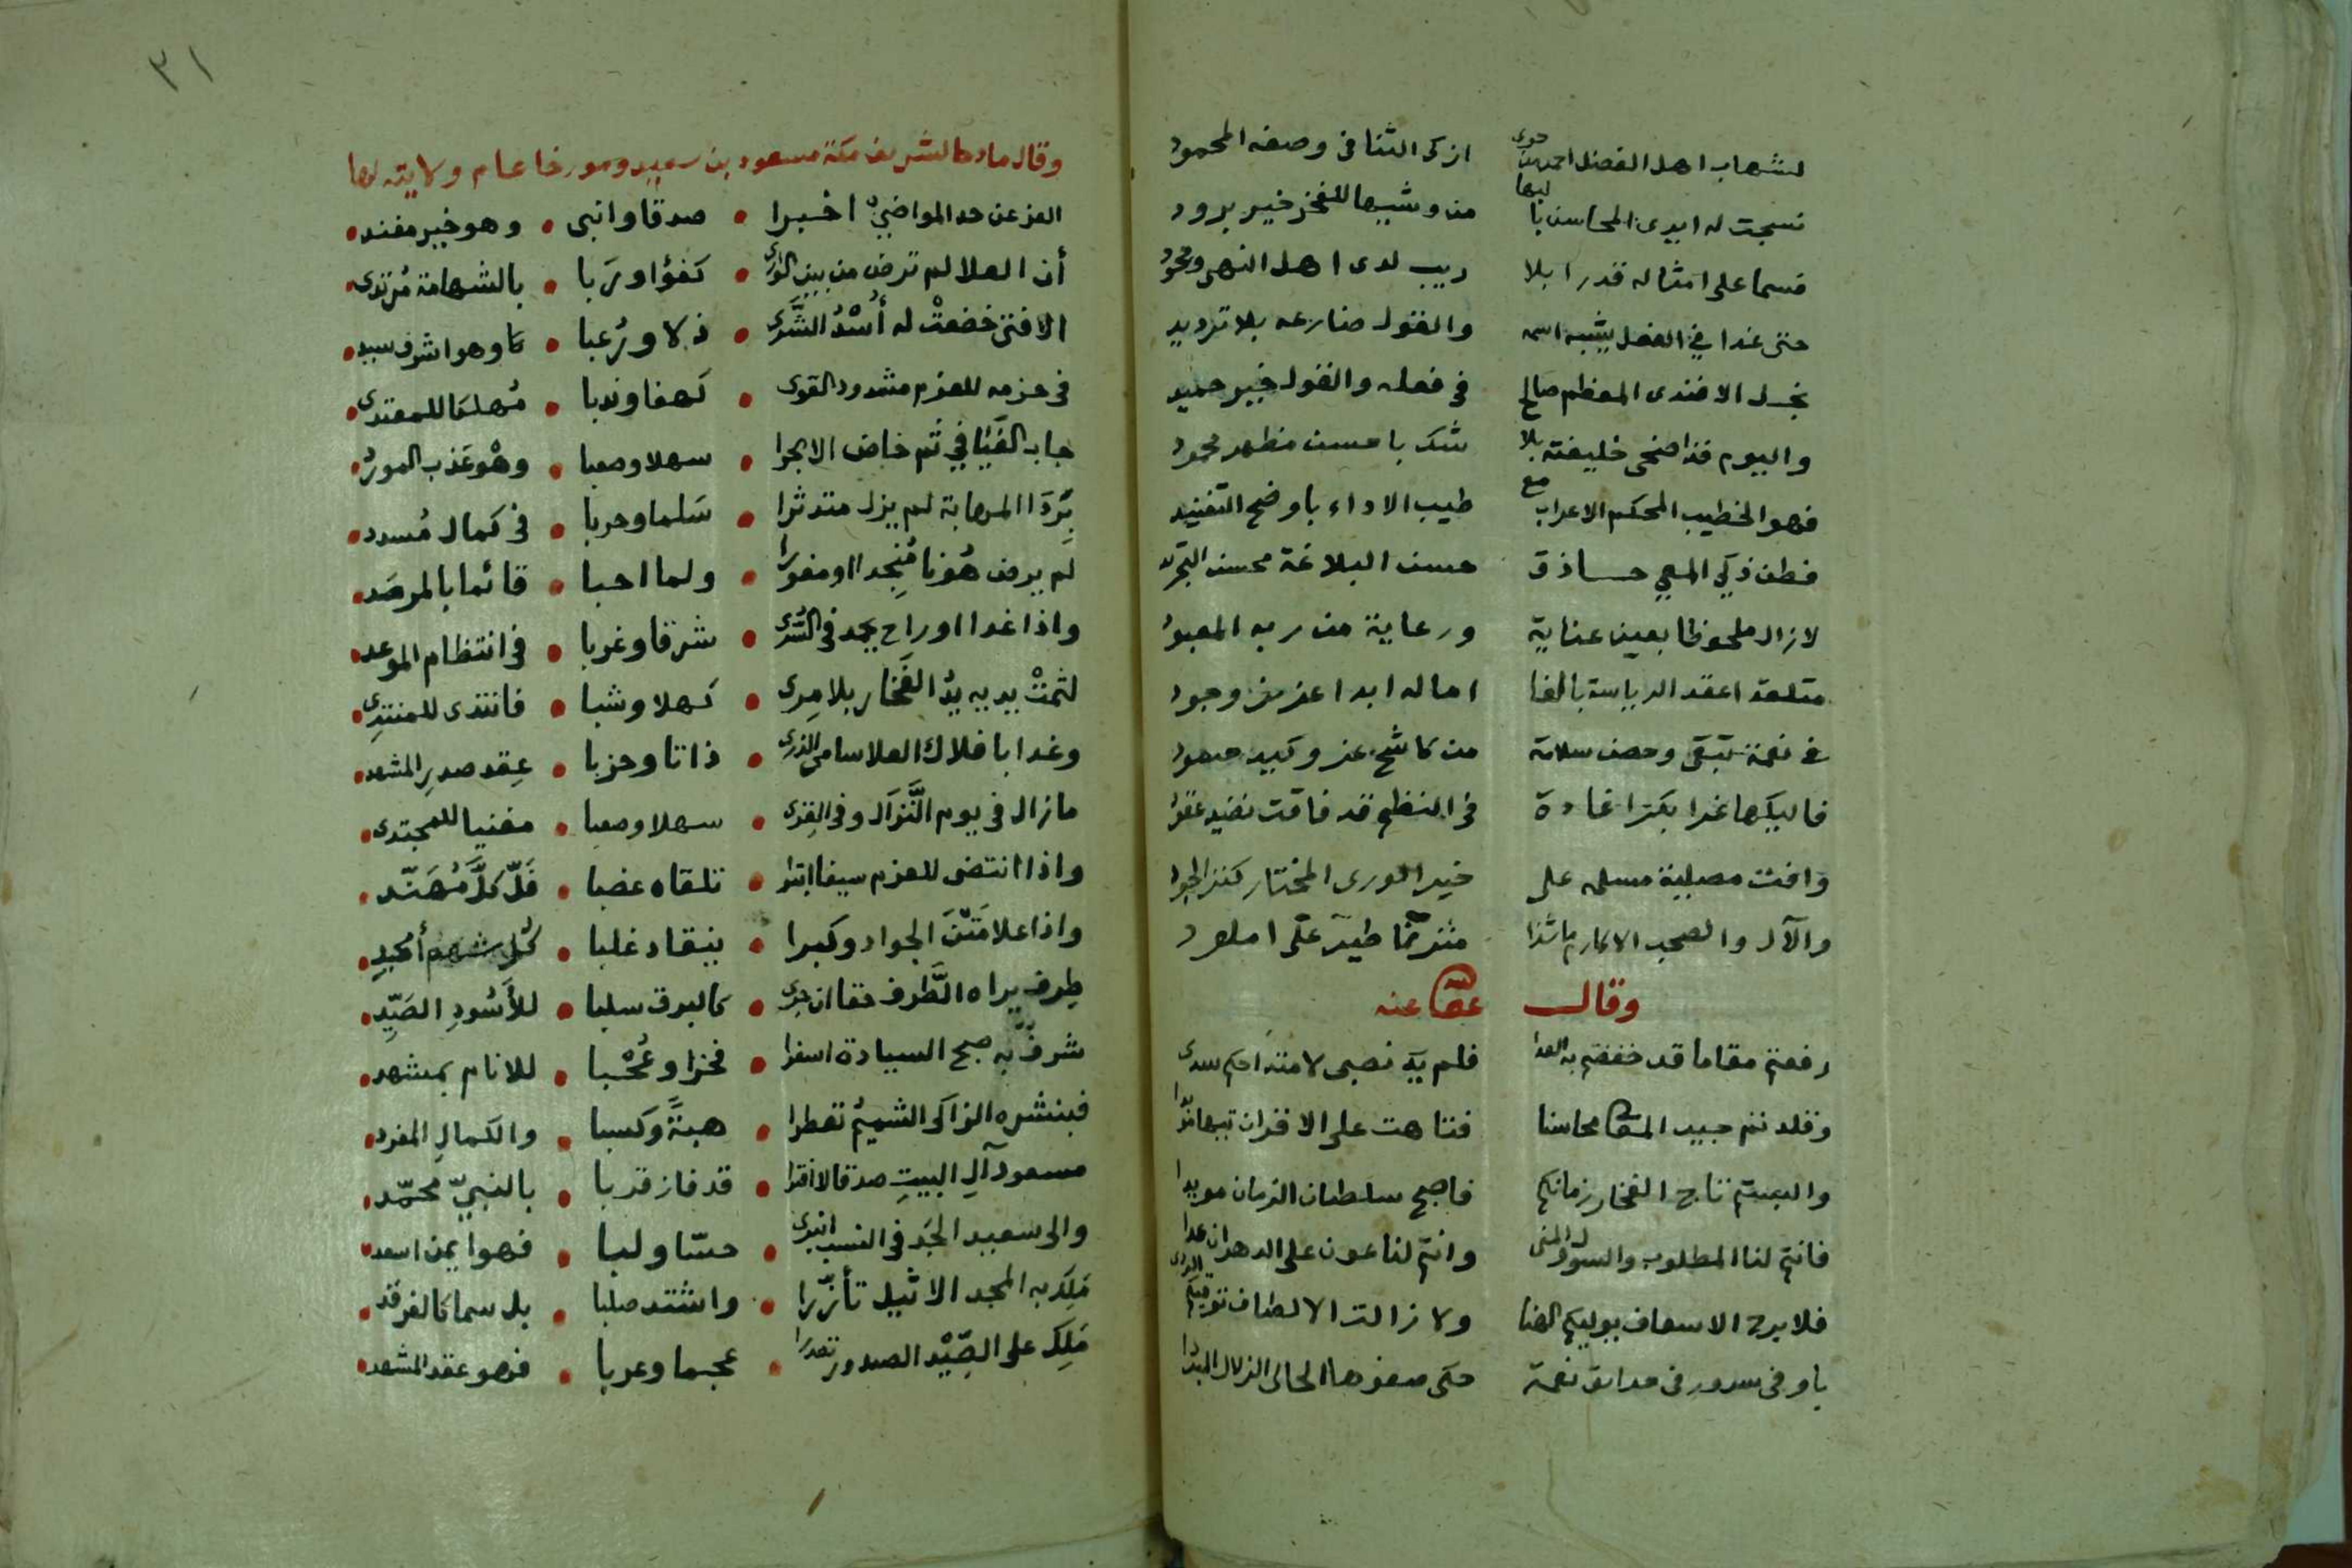 لشهاب اهل الفضل احمد من حوى ازكى الثنا فى وصفه المحمود
نسجت له ايدى المحاسن يا لها من وشيها للفخر خير برود
فسما على امثاله قدرا بلا ريب لدى اهل النهى
حتى غدا في الفضل يشبه اسمه والقول ضارعه بلا ترديد
نجل الافندى المعظم صالح فى فعله والقول خير حميد
واليوم قد اضحى خليفة بلا شك باحسن مظهر محمود
فهو الخطيب المحكم الاعراب مع طيب الاداء باوضح التفنيد
فطن ذكي المعي حاذق حسن البلاغة محسن
لا زال ملحوظا بعين عناية ورعاية من ربه المعبود
متقلدا عقد الرياسة بالغا اماله ابدا اعز وجود
في نعمة تبقى وحصن سلامة من كاشح عز وكيد حسود
فاليكها غرا بكرا غادة فى النظم قد فاقت نضيد عقود
وافت مصلية مسلمه على خير الورى المختار كنز الجود
والآل والصحب الاكارم ما شدا مترنما طير على املود
وقال عفا عنه
رفعتم مقاما قد خفضتم به العدا فلم يك نصبى لامتداحكم سدى
وقلدتم جيد المعالى محاسنا فتاهت على الاقران تيها
والبستم تاج الفخار زمانكم فاصبح سلطان الزمان مويدا
فانتم لنا المطلوب والسول والمنى وانتم لنا عون على الدهر ان عدا
فلا برح الاسعاف يوليكم الهنا ولا زالت الالطاف
باوفى سرور فى حدائق نعمة حكى صفوها الحالى الزلال المبردا
٣١
وقال مادحا لشريف مكة مسعود بن سعيد ومورخا عام ولايته لها
العز عن حد المواضي اخبرا • صدقا وانبى • وهو خير مفند •
أن العلا لم ترض من بين الورى • كفؤا وربا • بالشهامة مرتدى •
الا فتى خضعت له أسد الشرى • ذلا ورعبا • وهو اشرف سيد •
فى حزمه للعزم مشدود القوى • كهفا وندبا • مهلكا للمعتدى •
جاب الفيافي ثم خاض الابحرا • سهلا وصعبا • وهو عذب المورد •
بردا المهابة لم يزل متدثرا • سلما وحربا • فى كمال مسدد •
لم يرض هونا منجدا او مغورا • ولما احبا • قائما بالمرصد •
واذا غدا او راح يجد فى السرى • شرقا وغربا • فى انتظام الموعد •
لثمت يديه يد الفخار بلا مرى • كهلا وشبا • فانتدى للمنتدى •
وغدا بافلاك العلا سامى الذرى • ذاتا وحزبا • عقد صدر المشهد •
ما زال فى يوم النزال وفى القرى • سهلا وصعبا • مغنيا للمجتدى •
واذا انتضى للعزم سيفا ابترا • تلقاه عضبا • فل كل مهند •
واذا علا متن الجواد وكبرا • ينقاد غلبا • كل شهم أمجد •
طرف يراه الطرف حقا ان جرى • كالبرق سلبا • للأسود الصيد •
شرف به صبح السيادة اسفرا • فخرا وعجبا • للانام بمشهد •
فبنشره الزاكى الشميم تعطرا • هبة وكسبا • والكمال المفرد •
مسعود آل البيت صدقا لا افترا • قد فاز قربا • بالنبي محمد •
والى سعيد الجد فى النسب انبرى • حسا ولبا • فهو ايمن اسعد •
ملك به المجد الاثيل تأزرا • واشتد صلبا • بل سما كالفرقد •
ملك على الصيد الصدور تصدرا • عجما وعربا • فهو عقد المشهد •